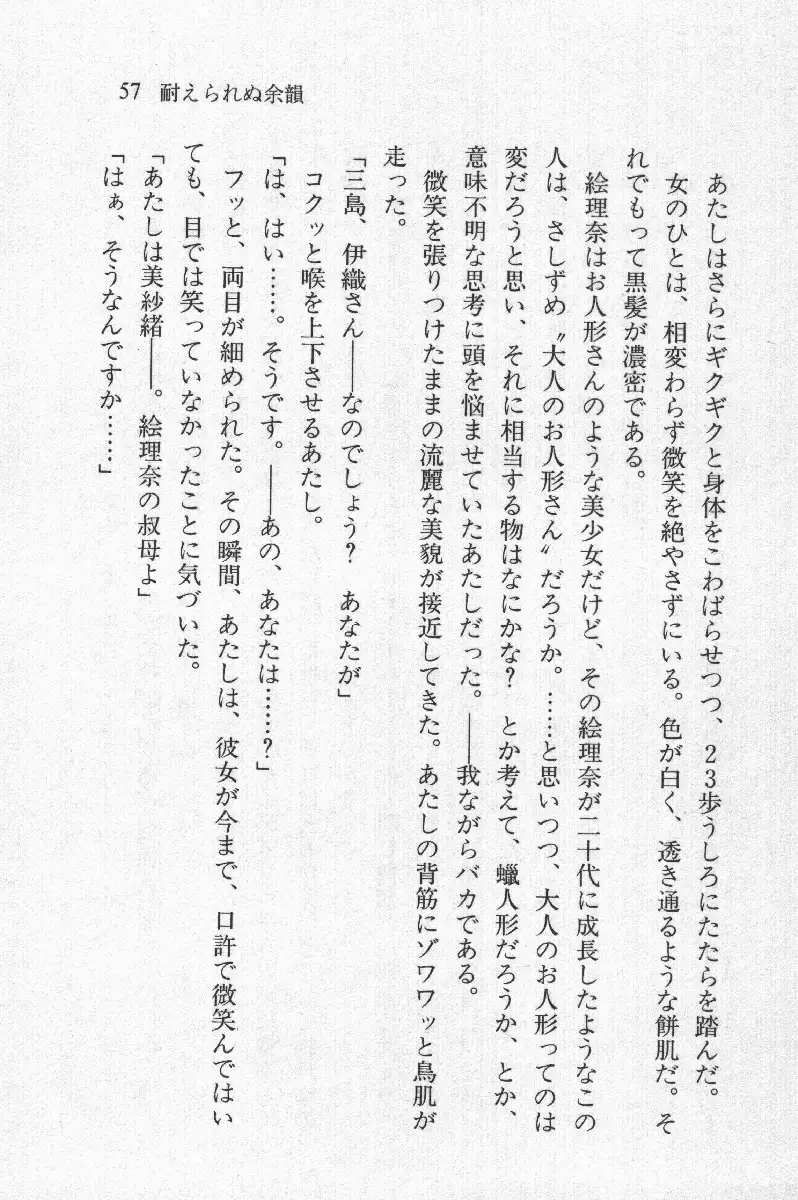 57 耐えられぬ余韻
あたしはさらにギクギクと身体をこわばらせつつ、23歩うしろにたたらを踏んだ。
女のひとは、相変わらず微笑を絶やさずにいる。色が白く、透き通るような餅肌だ。そ
れでもって黒髪が濃密である。
絵理奈はお人形さんのような美少女だけど、その絵理奈が二十代に成長したようなこの
人は、さしずめ〝大人のお人形さん〟だろうか。……と思いつつ、大人のお人形ってのは
変だろうと思い、それに相当する物はなにかな？　とか考えて、蠟人形だろうか、とか、
意味不明な思考に頭を悩ませていたあたしだった。――我ながらバカである。
微笑を張りつけたままの流麗な美貌が接近してきた。あたしの背筋にゾワワッと鳥肌が
走った。
「三島、伊織さん――なのでしょう？　あなたが」
コクッと喉を上下させるあたし。
「は、はい……。そうです。――あの、あなたは……？」
フッと、両目が細められた。その瞬間、あたしは、彼女が今まで、口許で微笑んではい
ても、目では笑っていなかったことに気づいた。
「あたしは美紗緒――。絵理奈の叔母よ」
「はぁ、そうなんですか……」